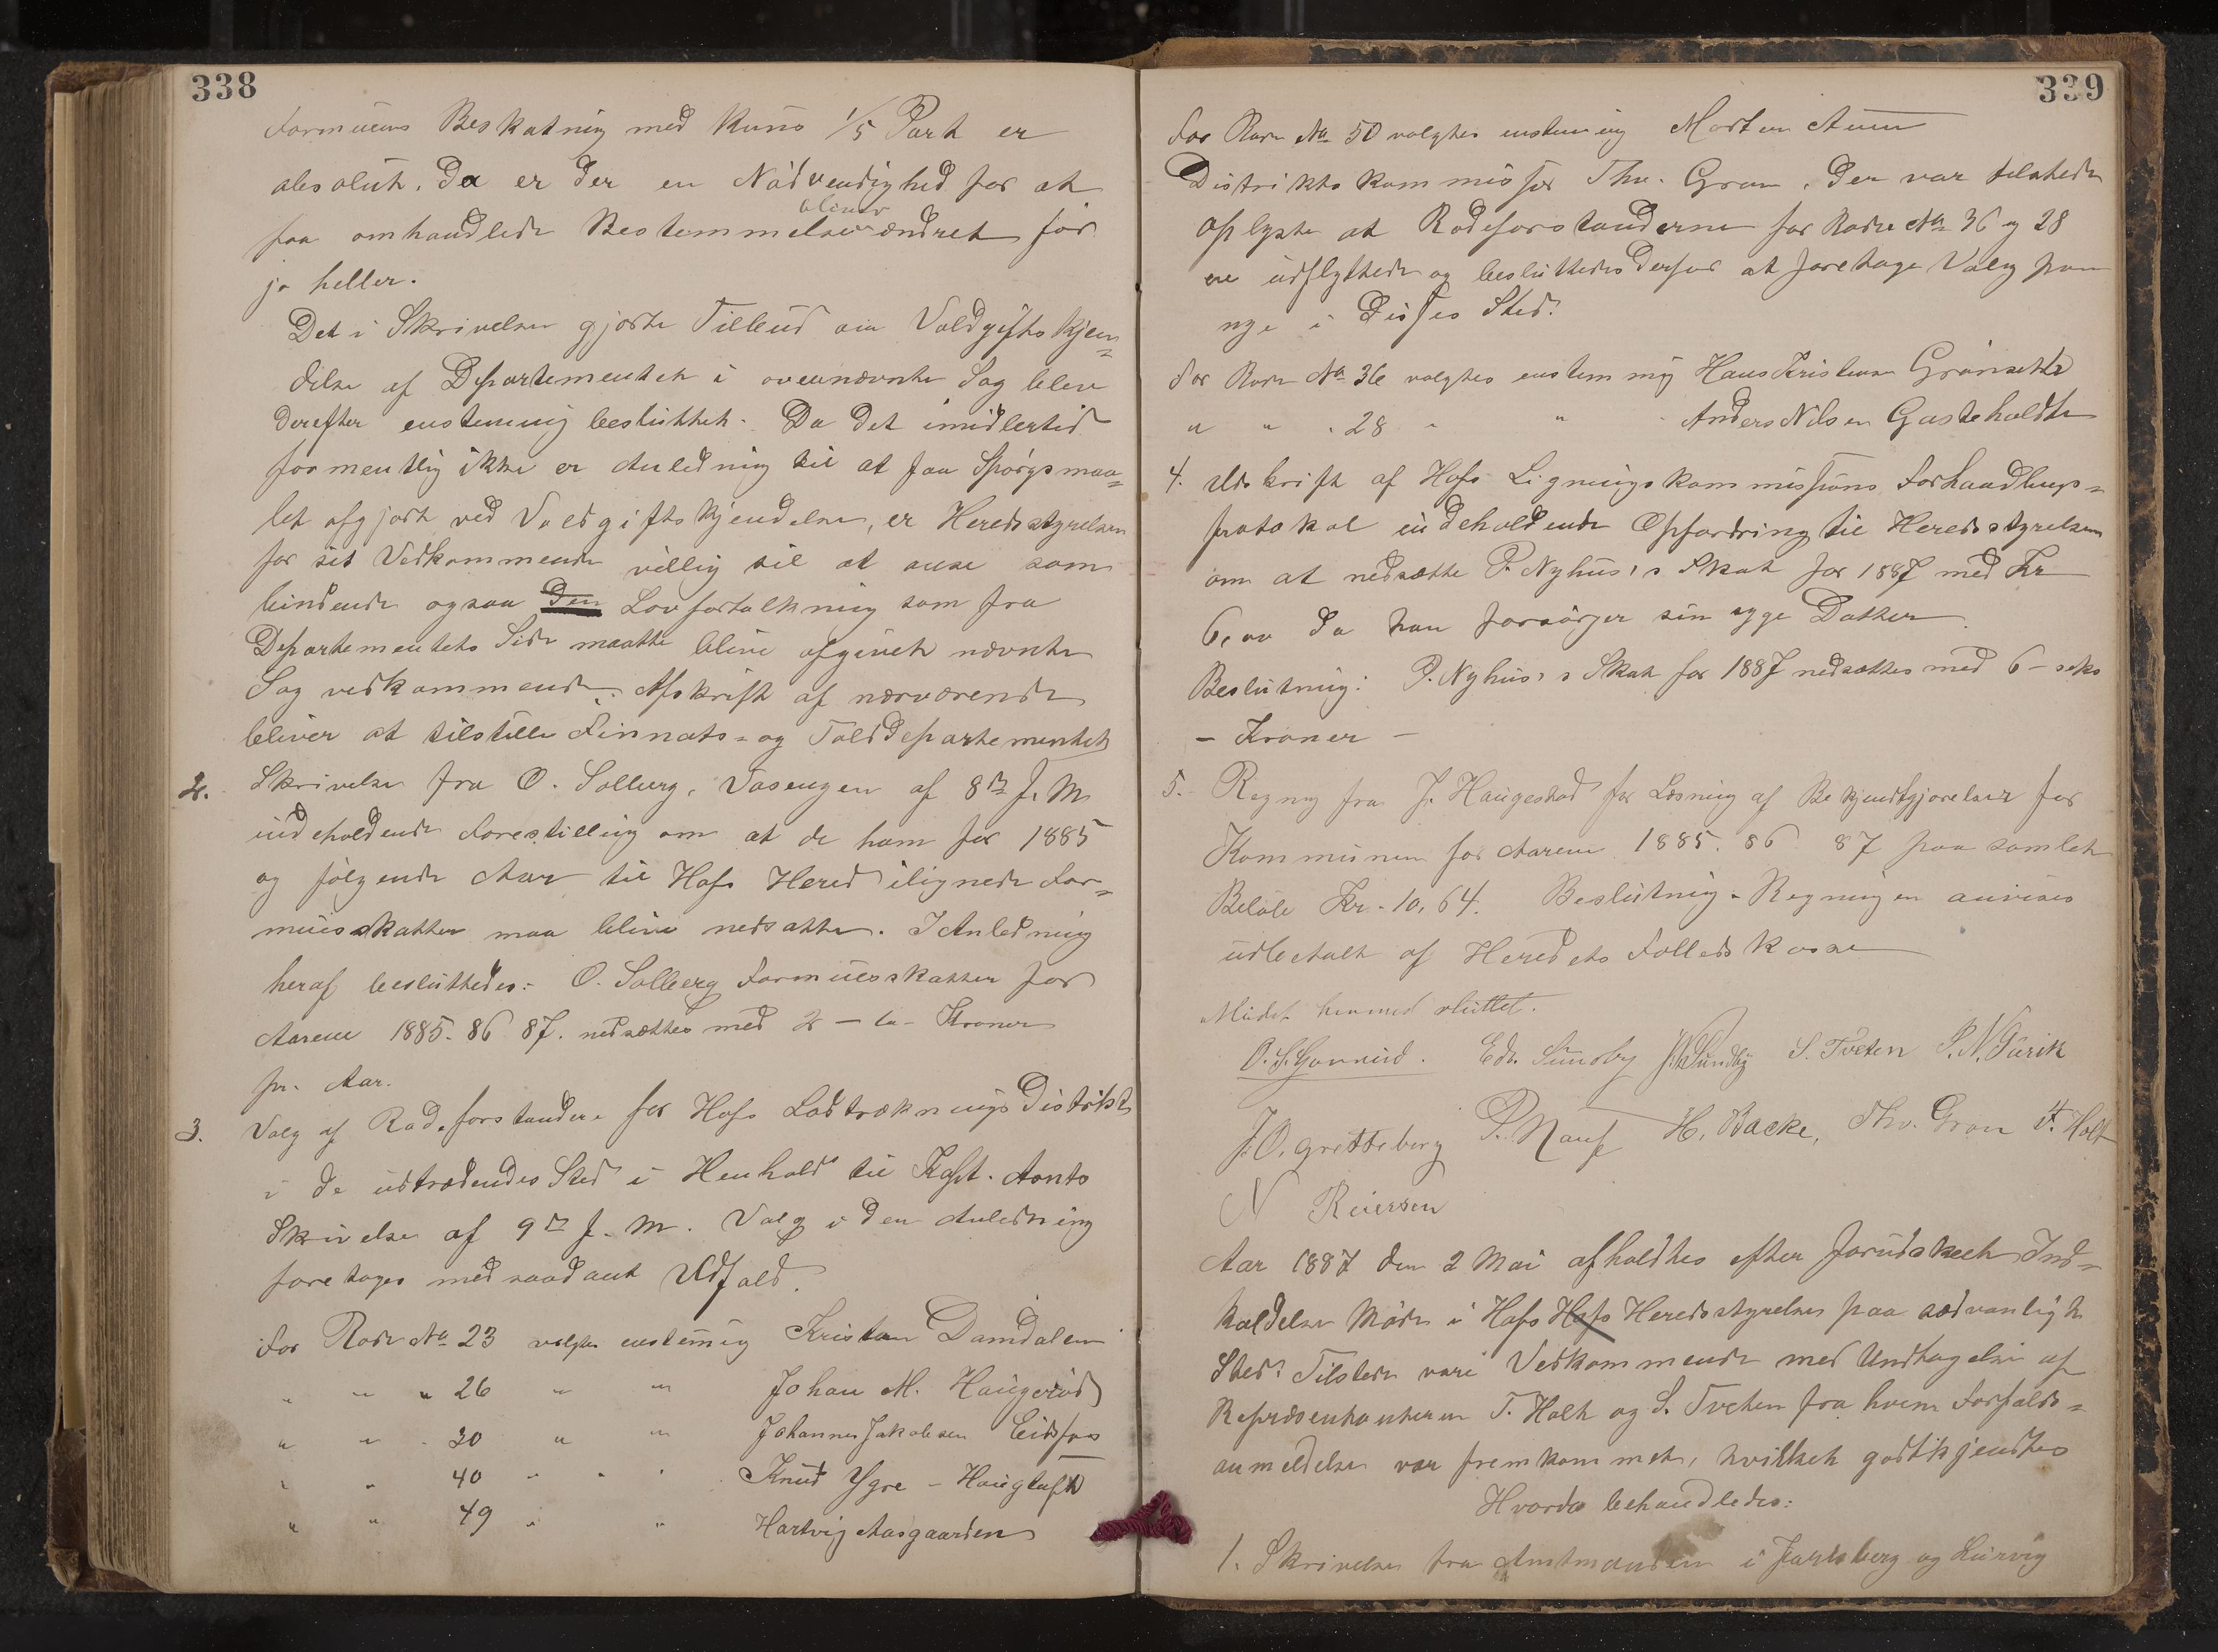 338
Formuens Beskatning med kuns 1/5 Part er
absolut. Da er der en Nødvendighed for at
bliver
faa omhandlede Bestemmelser ændret før
jo heller.
Det i Skrivelsen gjorte Tilbud om Voldgiftskjen=
delse af Departementet i ovennævnte Sag blev
derefter enstemmig besluttet. Da det imidlertid
formentlig ikke er Anledning til at faa Spørgsmaa=
let afgjort ved Voldgiftskjendelse, er Heredsstyrelsen
for sit Vedkommende villig til at anse som
bindende ogsaa den Lovfortolkning som fra
Departementets Side maatte blive afgivet nævnte
Sag vedkommende. Afskrift af nærværende
bliver at tilstille Finnats= og Tolddepartementet
2. Skrivelse fra O. Solberg, Vasengen af 8de f. M.
indeholdende Forestilling om at de ham for 1885
og følgende Aar til Hofs Hered ilignede For=
muesskatter maa blive nedsatte. I Anledning
heraf besluttedes: O. Solberg Formuesskatter for
Aarene 1885. 86 87. nedsættes med 2 - to - Kroner
pr. Aar.
3. Valg af Rodeforstandere for Hofs Lodtrækningsdistrikt
i de udtrædendes Sted i Henhold til Kapt. Aonts
Skrivelse af 9de f. M. Valg i den Anledning
foretages med saadant Udfald.
For Rode No 23 valgtes enstemmig Kristian Damdalen
" " " 26 " " Johan M. Haugerød
" " " 30 " " Johannes Jakobsen Eidsfos
" " 40 " " " Knud Ygre - Haugløpt
" " 49 " " Hartvig Aasgaarden
339
For Rode No 50 valgtes enstemmig Morten Auen
Distriktskommissær Thv. Gran, der var tilstede
oplyste at Rodeforstanderne for Rodre No 36 og 28
ere udflyttede og besluttedes derfor at foretage Valg paa
nye i disses Sted.
For Rode No 36 valgtes enstemmig Hans Kristian Grønsett
" " . 28 " " Anders Nilsen Gasteholdt
4. Udskrift af Hofs Ligningskommissions Forhandlings=
protokol indeholdende Opfordring til Heredsstyrelsen
om at nedsætte P. Nyhus's Skat for 1887 med Kr
6,00 da han forsørger sin syge Datter.
Beslutning: P. Nyhus's Skat for 1887 nedsættes med 6 - seks
- Kroner -
5. Regning fra J. Haugestad for Læsning af Bekjendtgjørelser for
Kommunen for Aarene 1885. 86 87 paa samlet
Beløb Kr. 10,64. Beslutning. Regningen anvises
udbetalt af Heredets Fælledskasse
Mødet hermed sluttet.
O. S. Gunnerud. Edv. Sundby J. Sundby S. Tveten P. N. Turik
J. O. Gretteberg P. Nauf H. Backe, Thv. Gran T. Holt
N Reiersen
Aar 1887 den 2 Mai afholdtes efter forudskeet Ind=
kaldelse Møde i Hofs Hofs Heredsstyrelse paa sædvanligt
Sted. Tilstede vare Vedkommende med Undtagelse af
Repræsentanterne T. Holt og S. Tveten fra hvem Forfalds=
anmeldelse var fremkommet, hvilket godtkjendtes
Hvorda behandledes:
1. Skrivelse fra Amtmanden i Jarlsberg og Laurvig